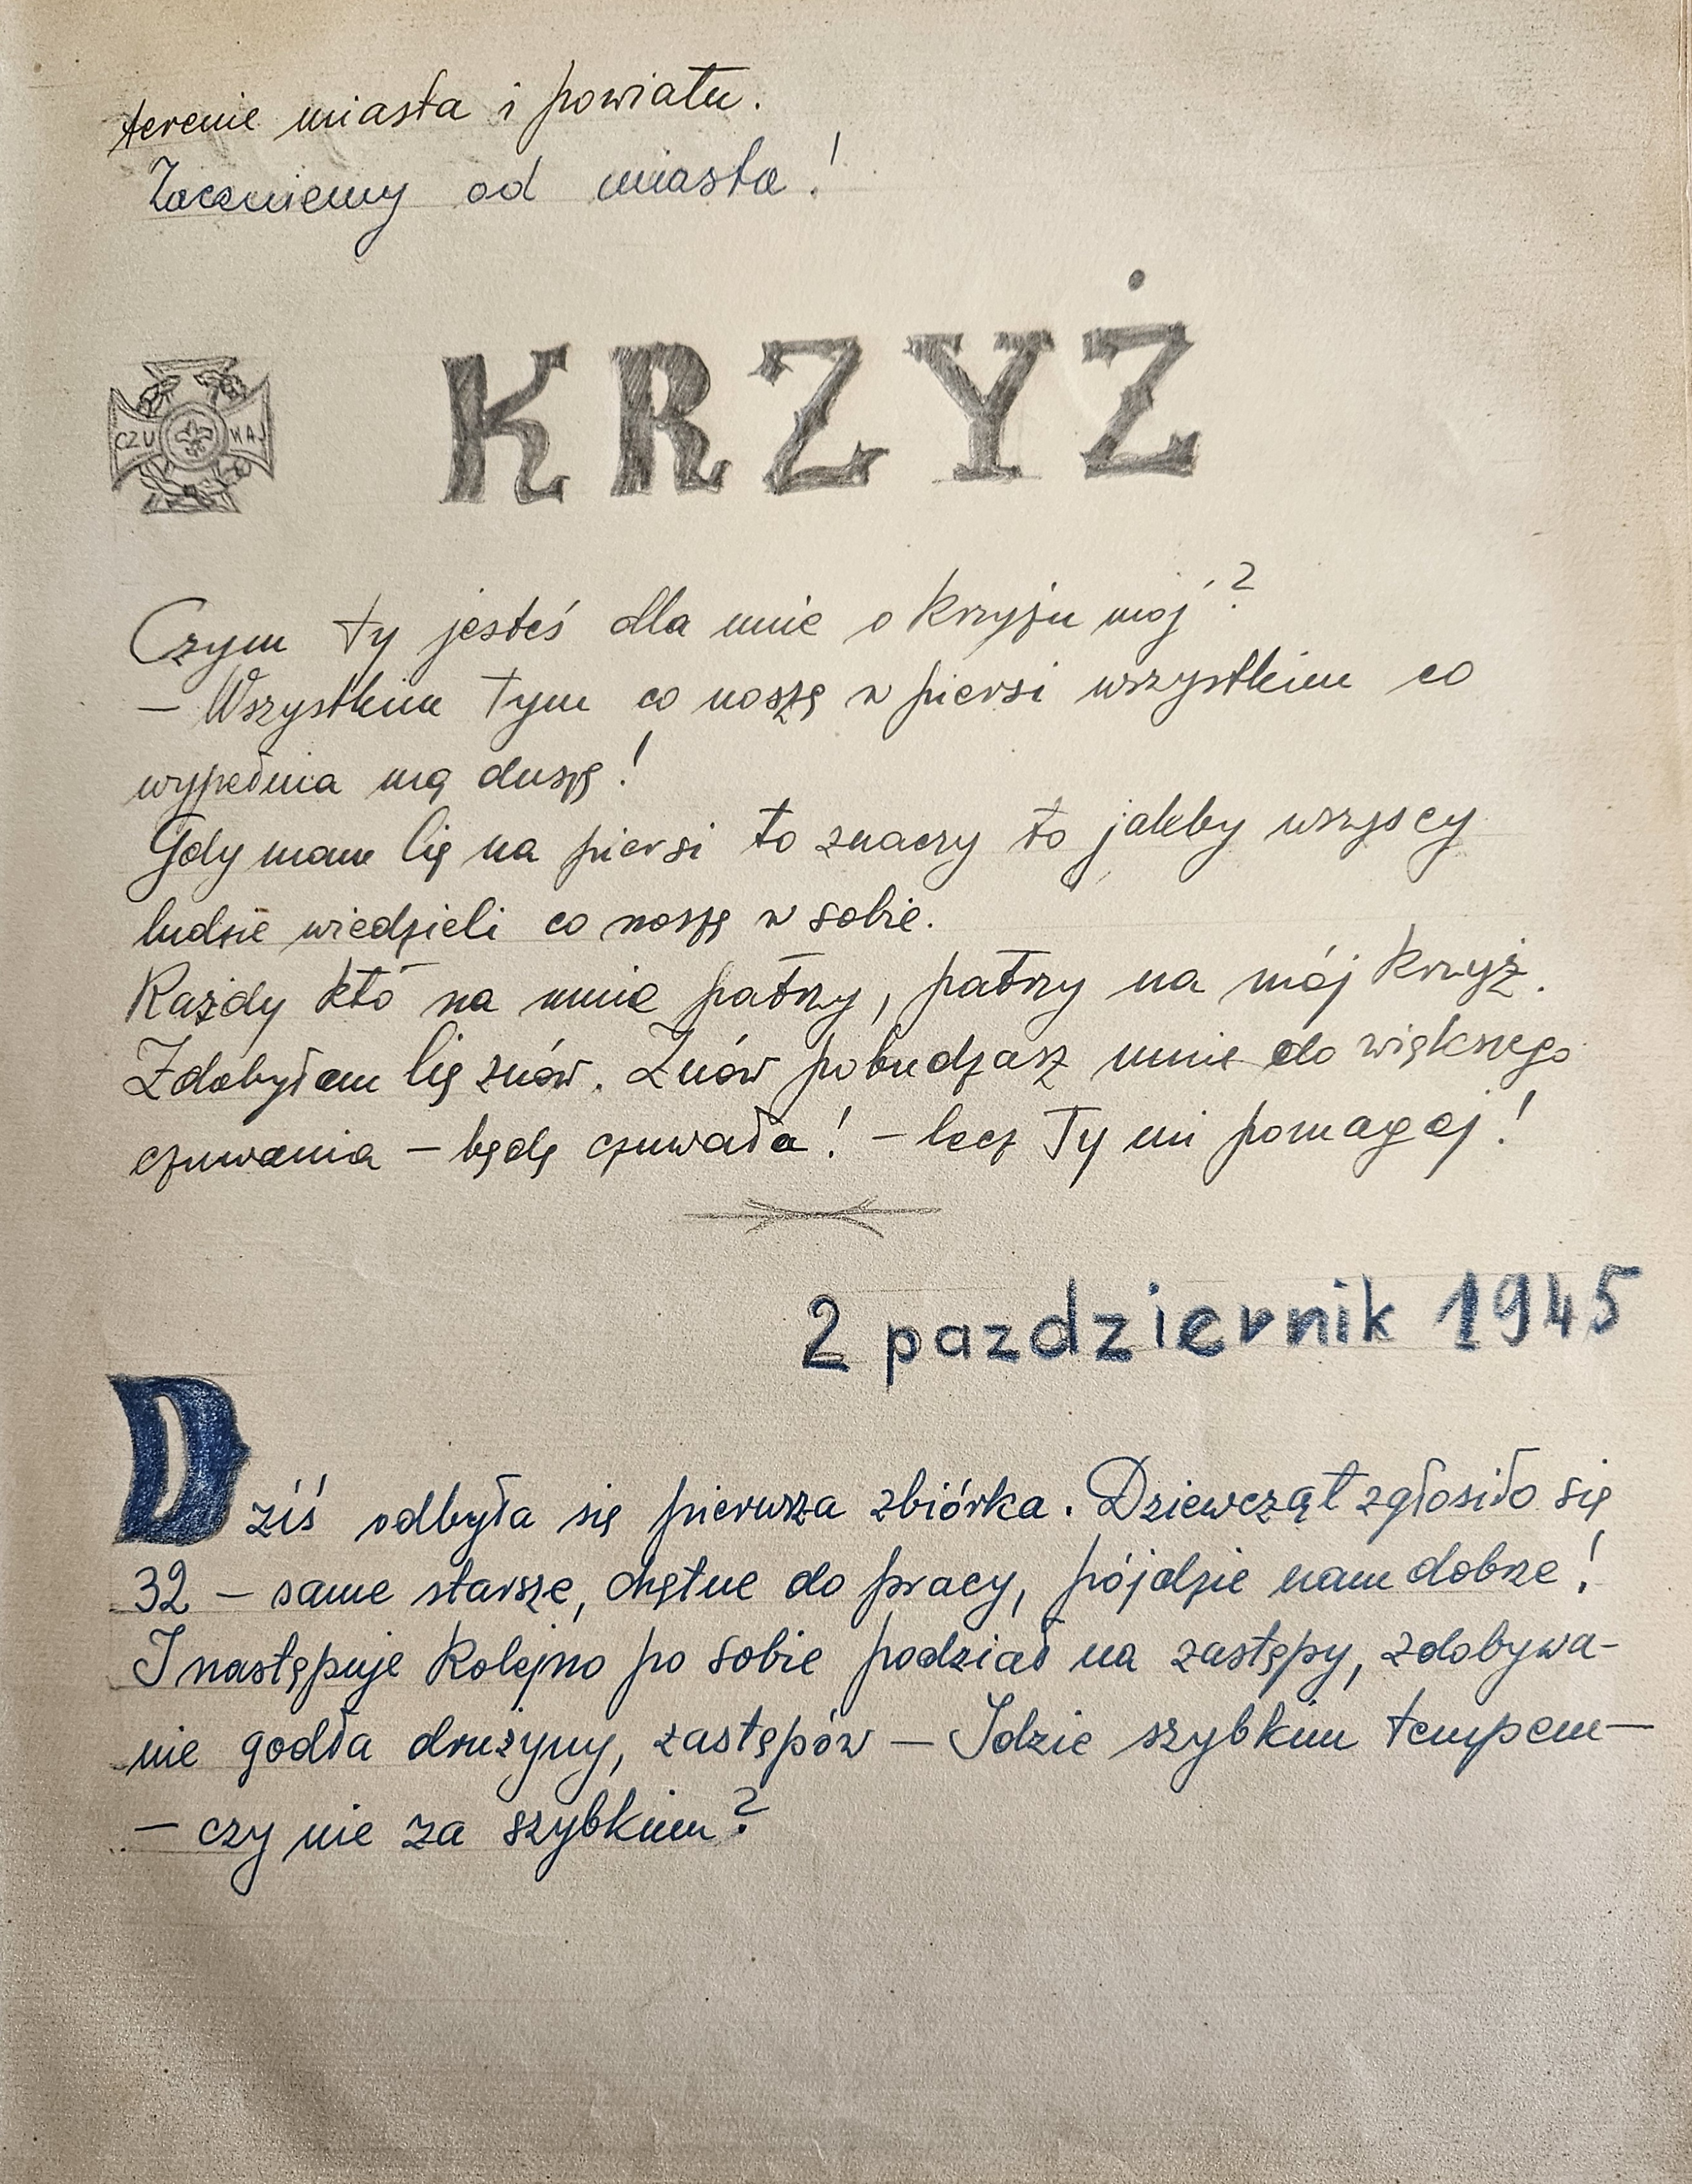 terenie miasta i powiatu.
Zaczniemy od miasta!
CZUWAJ
KRZYŻ
Czym ty jesteś dla mnie o krzyżu mój?
– Wszystkim tym co noszę w piersi wszystkim co
wypełnia mą duszę!
Gdy mam Cię na piersi to znaczy to jakby wszyscy
ludzie wiedzieli co noszę w sobie.
Każdy kto na mnie patrzy, patrzy na mój krzyż.
Zdobyłam Cię znów. Znów pobudzasz mnie do większego
czuwania – będę czuwała! – lecz Ty mi pomagaj!
2 pazdziernik 1945
Dziś odbyła się pierwsza zbiórka. Dziewcząt zgłosiło się
32 – same starsze, chętne do pracy, pójdzie nam dobrze!
I następuje kolejno po sobie podział na zastępy, zdobywa-
nie godła drużyny, zastępów – Idzie szybkim tempem –
– czy nie za szybkim?